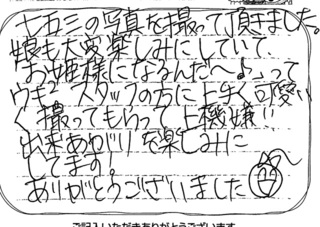 七五三の写真を撮って頂きました。
娘も大変楽しみにしていて、
「お姫様になるんだへ♪」って
ウキウキ スタッフの方に上手く可愛い
く撮ってもらって上機嫌!!
出来あがりを楽しみに
してます!
ありがとうございました
ご記入いただきありがとうございます